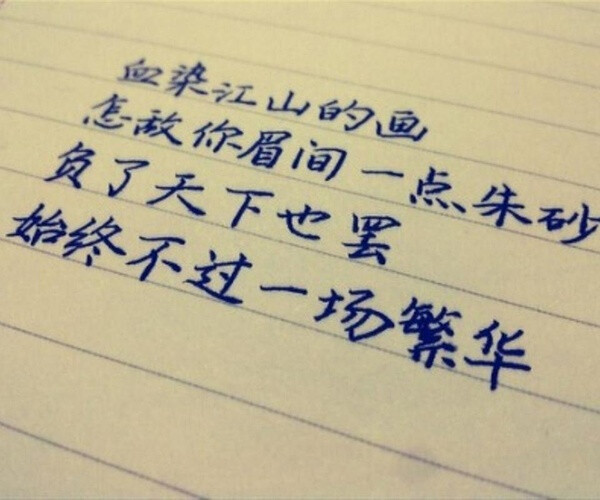 血染江山的画
怎敌你眉间一点朱砂
负了天下也罢
始终不过一场繁华